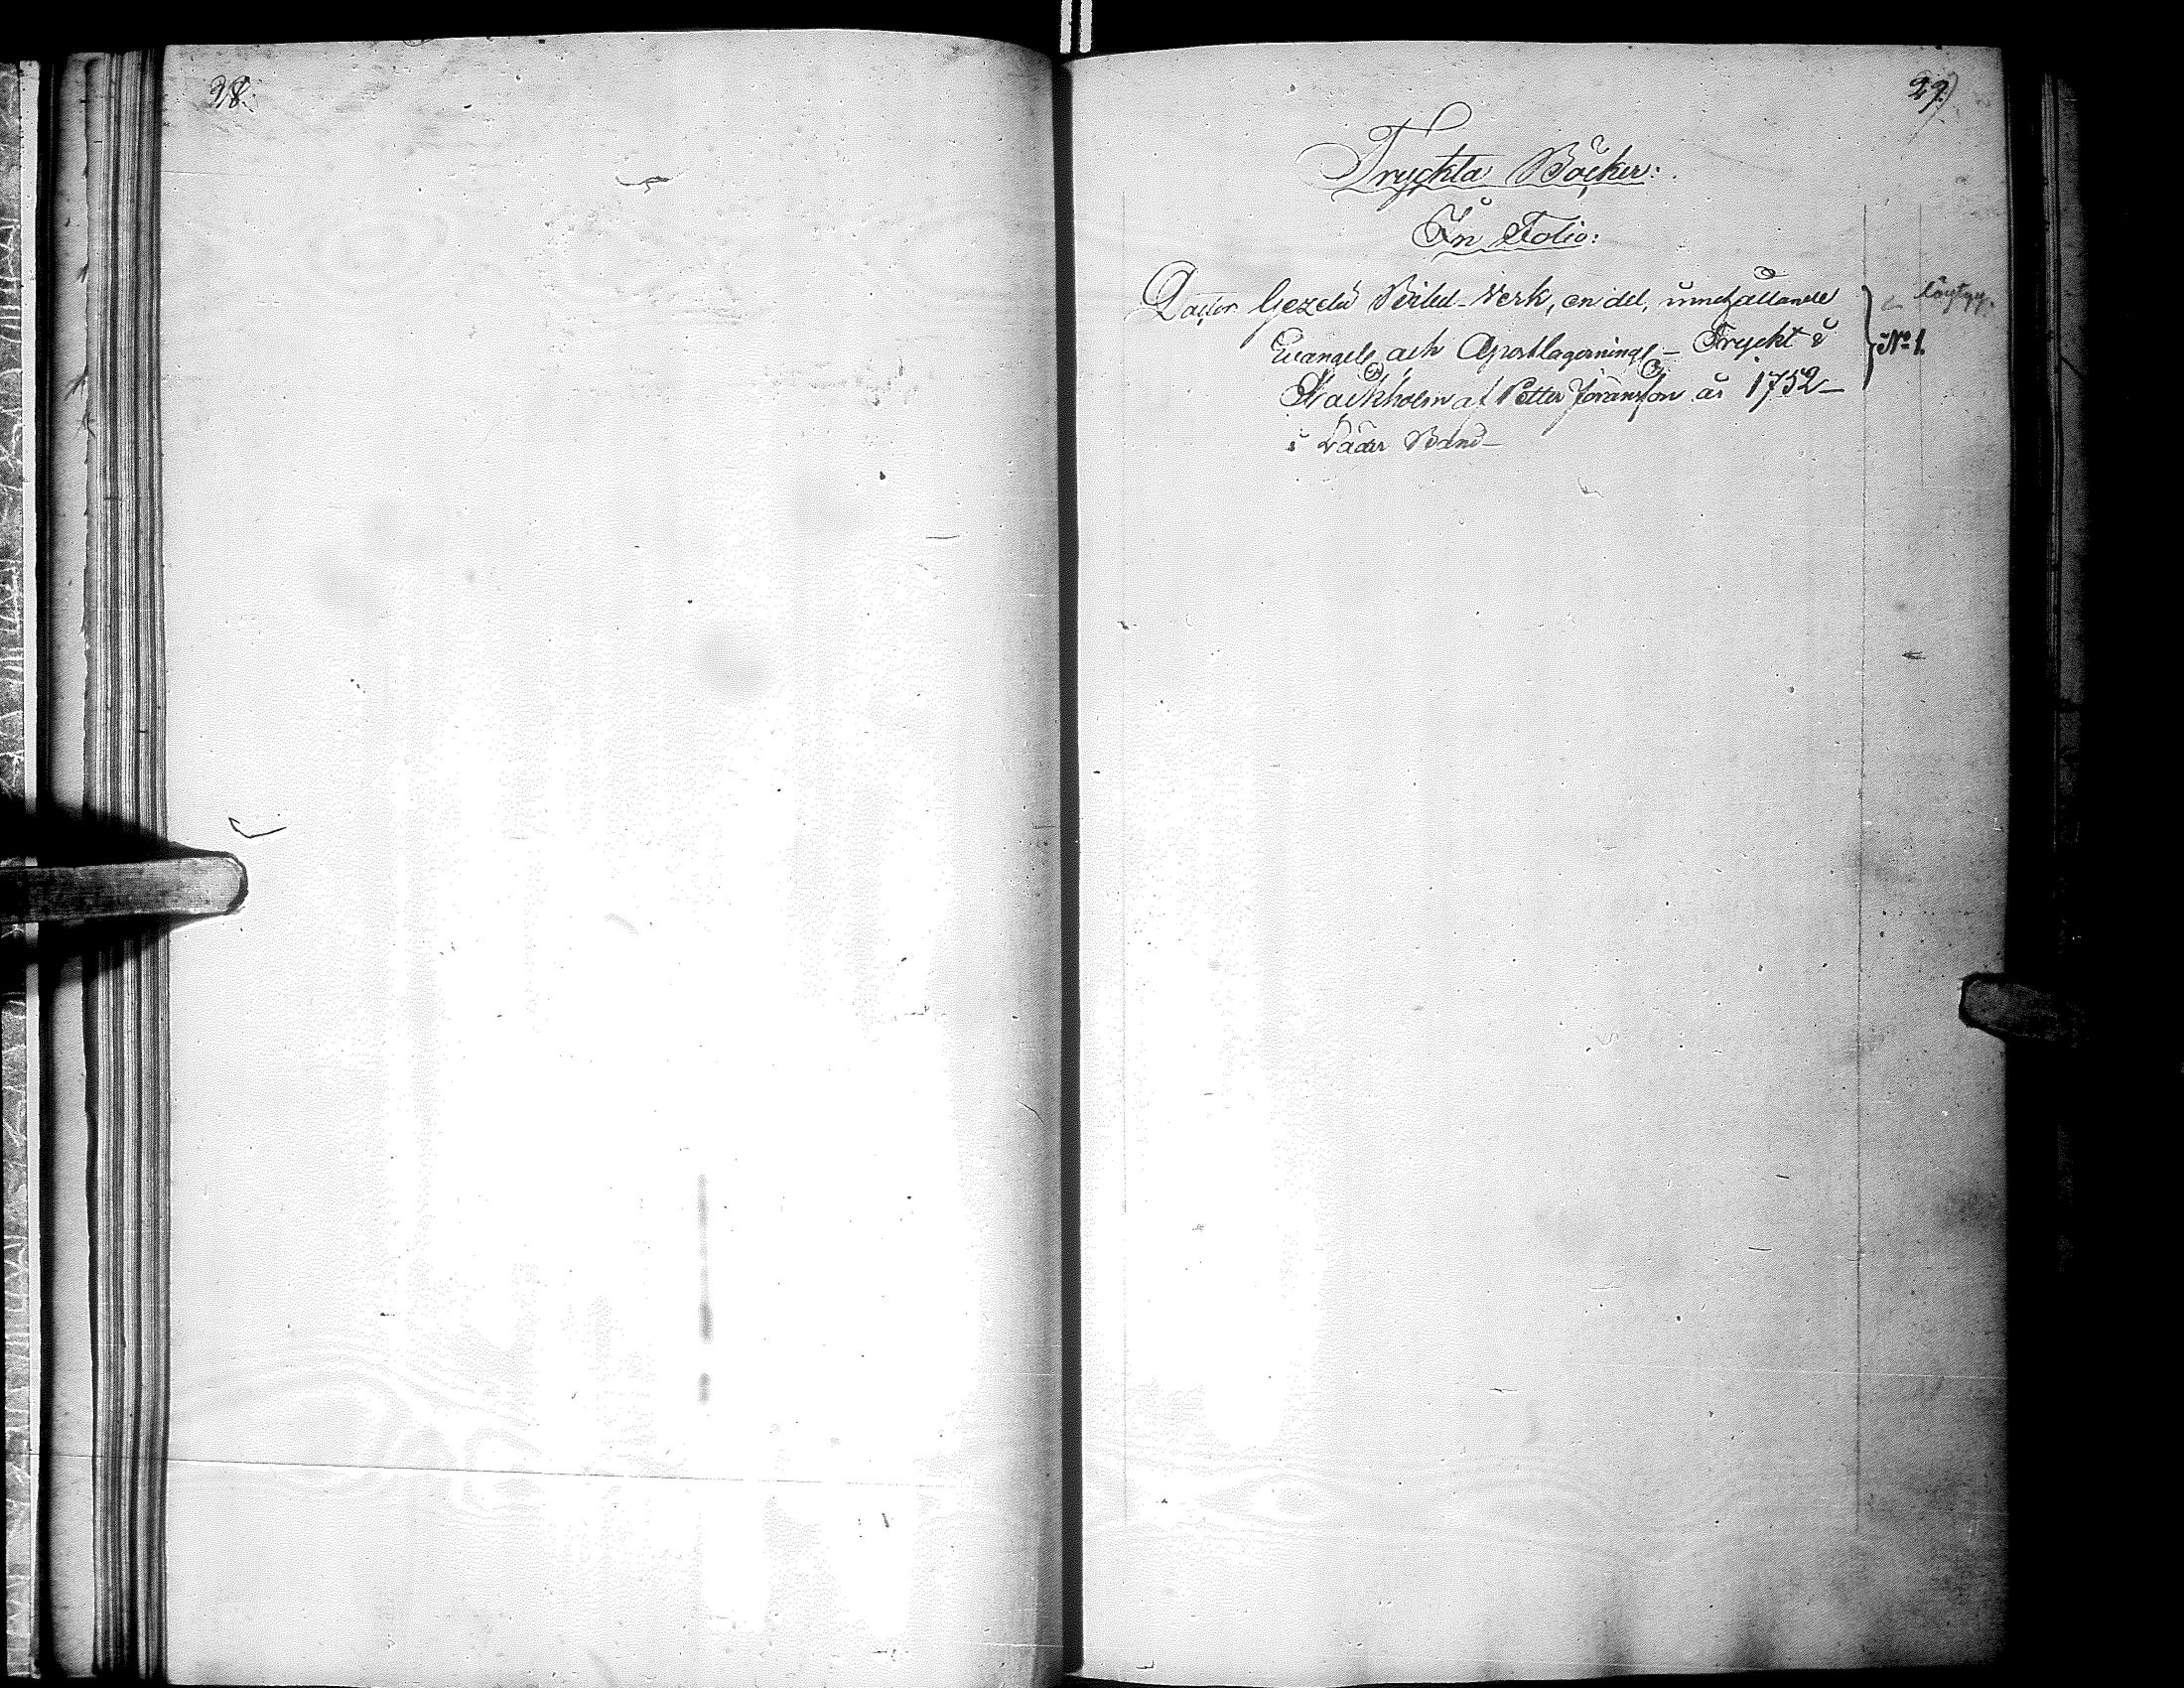 28.
29.
Tryckta Böcker:
In Folio:
Doctor Gezelii Bibel-Verk, en del, innehållande
Euangel. och Apostlagerning. – Tryckt i
Stockholm af Petter Jöransson år 1752 –
i Läder Band –
N:o 1.